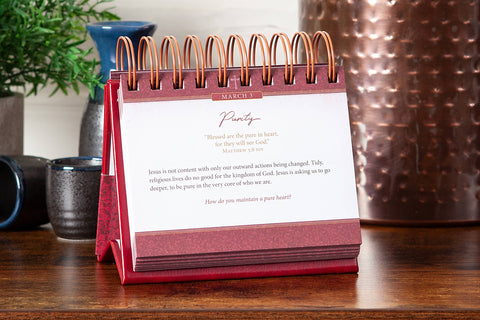 MARCH 3
Purity
"Blessed are the pure in heart,
for they will see God."
Matthew 5:8 NIV
Jesus is not content with only our outward actions being changed. Tidy,
religious lives do no good for the kingdom of God. Jesus is asking us to go
deeper, to be pure in the very core of who we are.
How do you maintain a pure heart?